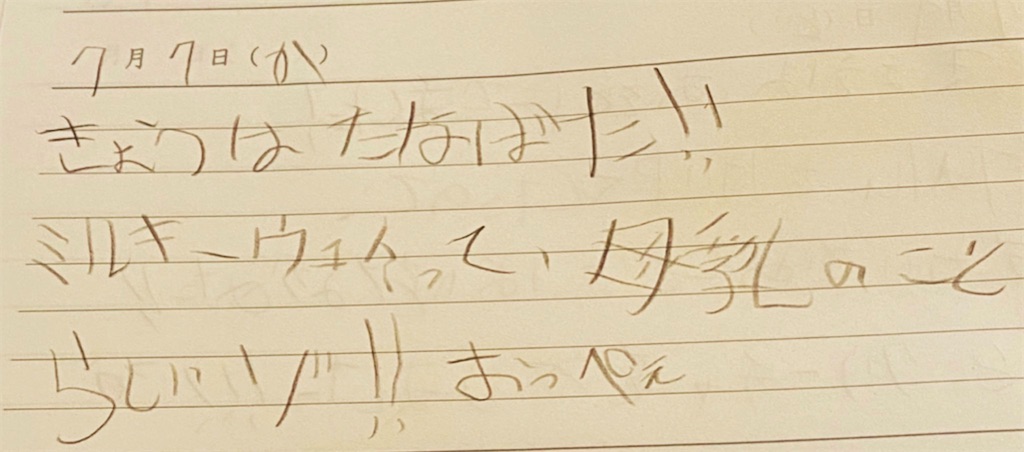 7月7日(か)
きょうは たなばた!!
ミルキーウェイって、母乳のこと
らしいゾ!! おっぺぇ